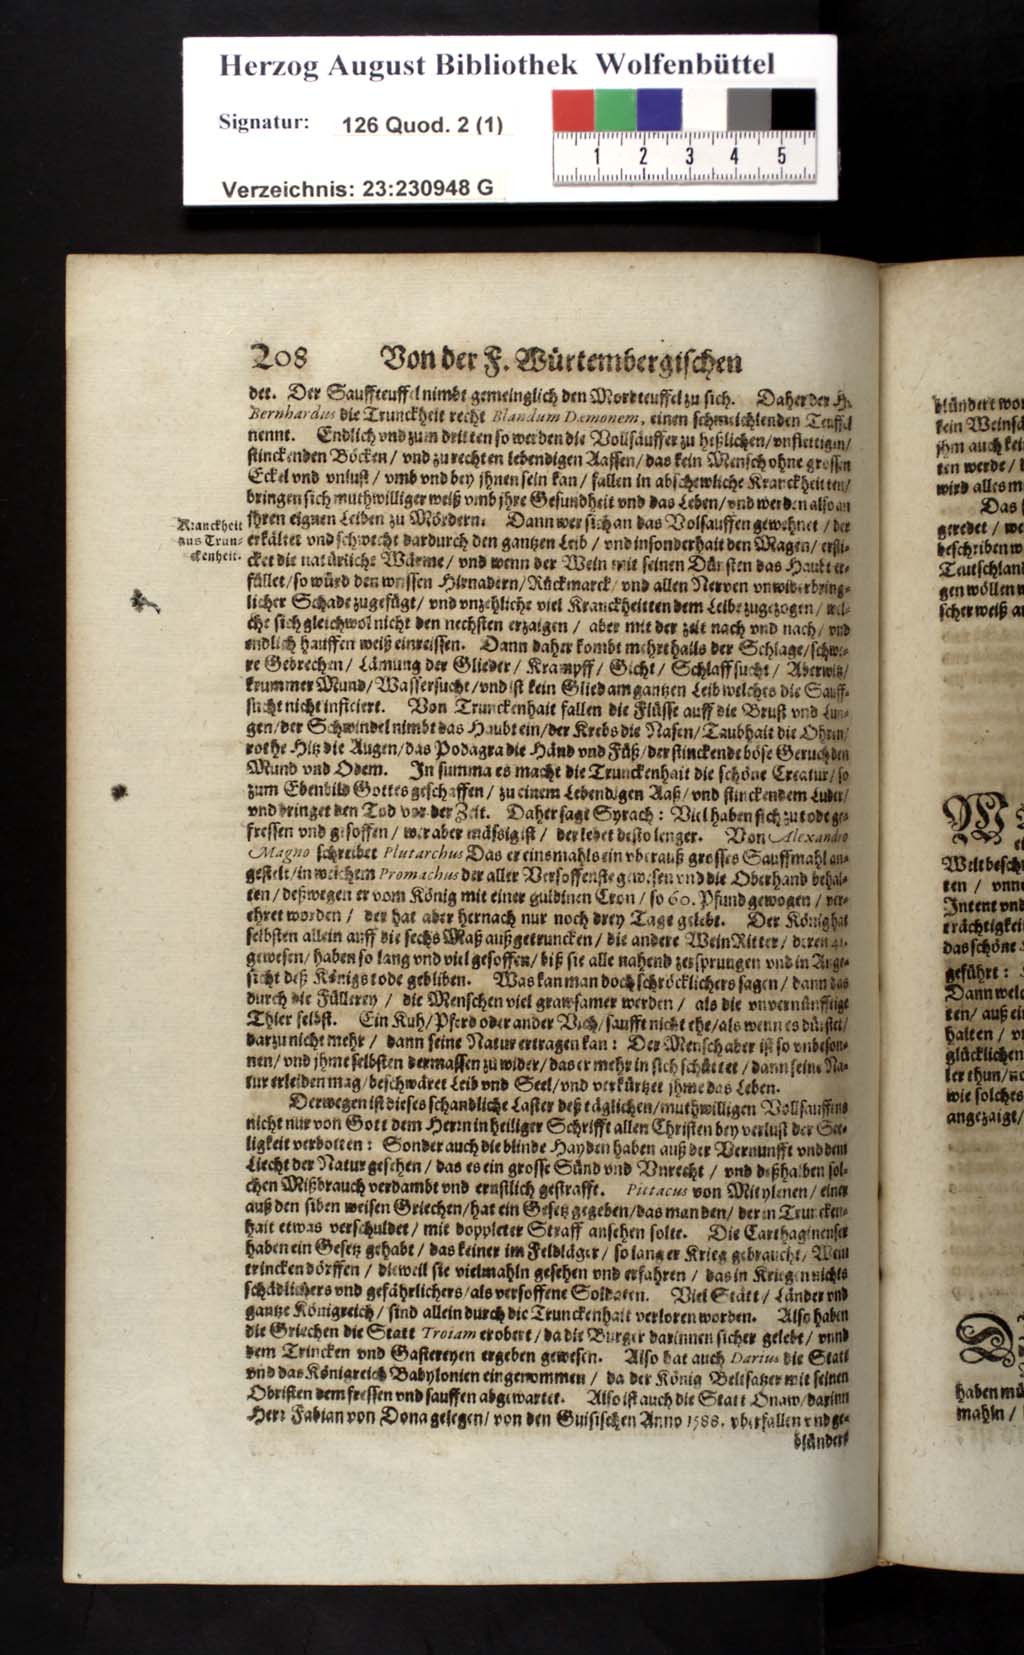 Herzog August Bibliothek Wolfenbüttel
Signatur: 126 Quod. 2 (1)
1 2 3 4 5
Verzeichnis: 23:230948 G
208 Von der F. Würtembergischen
det. Der Sauffteuffel nimbt gemeinglich den Mordteuffel zu sich. Daher der H.
Bernhardus die Trunckheit recht Blandum Dæmonem, einen schmeichlenden Teuffel
nennt. Endlich vnd zum dritten so werden die Vollsäuffer zu heßlichen/ vnflettigen/
stinckenden Böcken/ vnd zu rechten lebendigen Aassen/ das kein Mensch ohne grossen
Eckel vnd vnlust/ vmb vnd bey jhnen sein kan/ fallen in abschewliche Kranckheitten/
bringen sich muthwilliger weiß vmb jhre Gesundheit vnd das Leben/ vnd werden also an
jhren eignen Leiben zu Mördern. Dann wer sich an das Volsauffen gewehnet/ der
Kranckheit
aus Trun-
ckenheit.
erkältet vnd schwecht dardurch den gantzen Leib/ vnd insonderhait den Magen/ ersti-
cket die natürliche Wärme/ vnd wenn der Wein mit seinen Dünsten das Haubt er-
füllet/ so würd den weissen Hirnadern/ Rückmarck/ vnd allen Nerven vnwiderbring-
licher Schade zugefügt/ vnd vnzehliche viel Kranckheitten dem Leibe zugezogen/ wel-
che sich gleichwol nicht den nechsten erzaigen/ aber mit der zeit nach vnd nach/ vnd
endlich hauffen weiß einreissen. Dann daher kombt mehrtheils der Schlage/ schwe-
re Gebrechen/ Lämung der Glieder/ Krampff/ Gicht/ Schlaffsucht/ Aberwitz/
krummer Mund/ Wassersucht/ vnd ist kein Glied am gantzen Leib welches die Sauff-
sucht nicht inficiert. Von Trunckenhait fallen die Flüsse auff die Brust vnd Lun-
gen/ der Schwindel nimbt das Haubt ein/ der Krebs die Nasen/ Taubhait die Ohren/
rothe Hitz die Augen/ das Podagra die Händ vnd Füß/ der stinckende böse Geruch den
Mund vnd Odem. In summa es macht die Trunckenhait die schöne Creatur/ so
zum Ebenbild Gottes geschaffen/ zu einem Lebendigen Aaß/ vnd stinckendem Luder/
vnd bringet den Tod vor der Zeit. Daher sagt Syrach: Viel haben sich zu tode ge-
fressen vnd gesoffen/ wer aber mässig ist/ der lebet desto lenger. Von Alexandro
Magno schreibet Plutarchus Das er einsmahls ein vberauß grosses Sauffmahl an-
gestelt/ in welchem Promachus der aller Versoffenste gewesen vnd die Oberhand behal-
ten/ deßwegen er vom König mit einer guldinen Cron/ so 60. Pfund gewogen/ ver-
ehret worden/ der hat aber hernach nur noch drey Tage gelebt. Der König hat
selbsten allein auff die sechs Maß außgetruncken/ die andere WeinRitter/ deren 41.
gewesen/ haben so lang vnd viel gesoffen/ biß sie alle nahend zersprungen vnd in Ange-
sicht deß Königs tode gebliben. Was kan man doch schröcklichers sagen/ dann das
durch die Füllerey/ die Menschen viel grawsamer werden/ als die vnvernünfftige
Thier selbst. Ein Kuh/ Pferd oder ander Vieh/ saufft nicht ehe/ als wenn es dürstet/
darzu nicht mehr/ dann seine Natur ertragen kan: Der Mensch aber ist so vnbeson-
nen/ vnd jhme selbsten dermassen zu wider/ das er mehr in sich schüttet/ dann seine Na-
tur erleiden mag/ beschwäret Leib vnd Seel/ vnd verkürtzet jhme das Leben.
Derwegen ist dieses schandliche Laster deß täglichen/ muthwilligen Vollsauffens
nicht nur von Gott dem Herrn in heiliger Schrifft allen Christen bey verlust der See-
ligkeit verbotten: Sonder auch die blinde Hayden haben auß der Vernunfft vnd dem
Liecht der Natur gesehen/ das es ein grosse Sünd vnd Vnrecht/ vnd deßhalben sol-
chen Mißbrauch verdambt vnd ernstlich gestrafft. Pittacus von Mitylenen/ einer
auß den siben weisen Griechen/ hat ein Gesetz gegeben/ das man den/ der in Truncken-
hait etwas verschuldet/ mit doppleter Straff ansehen solte. Die Carthaginenser
haben ein Gesetz gehabt/ das keiner im Feldläger/ so lang er Krieg gebraucht/ Wein
trincken dörffen/ dieweil sie vielmahln gesehen vnd erfahren/ das in Kriegen nichts
schädlichers vnd gefährlichers/ als versoffene Soldaten. Viel Stätt/ Länder vnd
gantze Königreich/ sind allein durch die Trunckenhait verloren worden. Also haben
die Griechen die Statt Troiam erobert/ da die Burger darinnen sicher gelebt/ vnnd
dem Trincken vnd Gastereyen ergeben gewesen. Also hat auch Darius die Statt
vnd das Königreich Babylonien eingenommen/ da der König Beltsatzer mit seinen
Obristen dem fressen vnd sauffen abgewartet. Also ist auch die Statt Onaw/ darinn
Herr Fabian von Dona gelegen/ von den Guisischen Anno 1588. vberfallen vnd ge-
blündert
blündert wor
kein Weinsä
jhm auch kei
ten werde/
wird alles m
Das
geredet/ we
beschriben w
Teutschland
gen wöllen
scher weiß
W
Welt besch
ten/ vnn
Intent vnd
trächtigkeit
das schöne
geführt:
Dann welc
ten/ auß ei
halten/
glücklichen
ler thun/
wie solches
angezaigt/
haben mü
mahln/